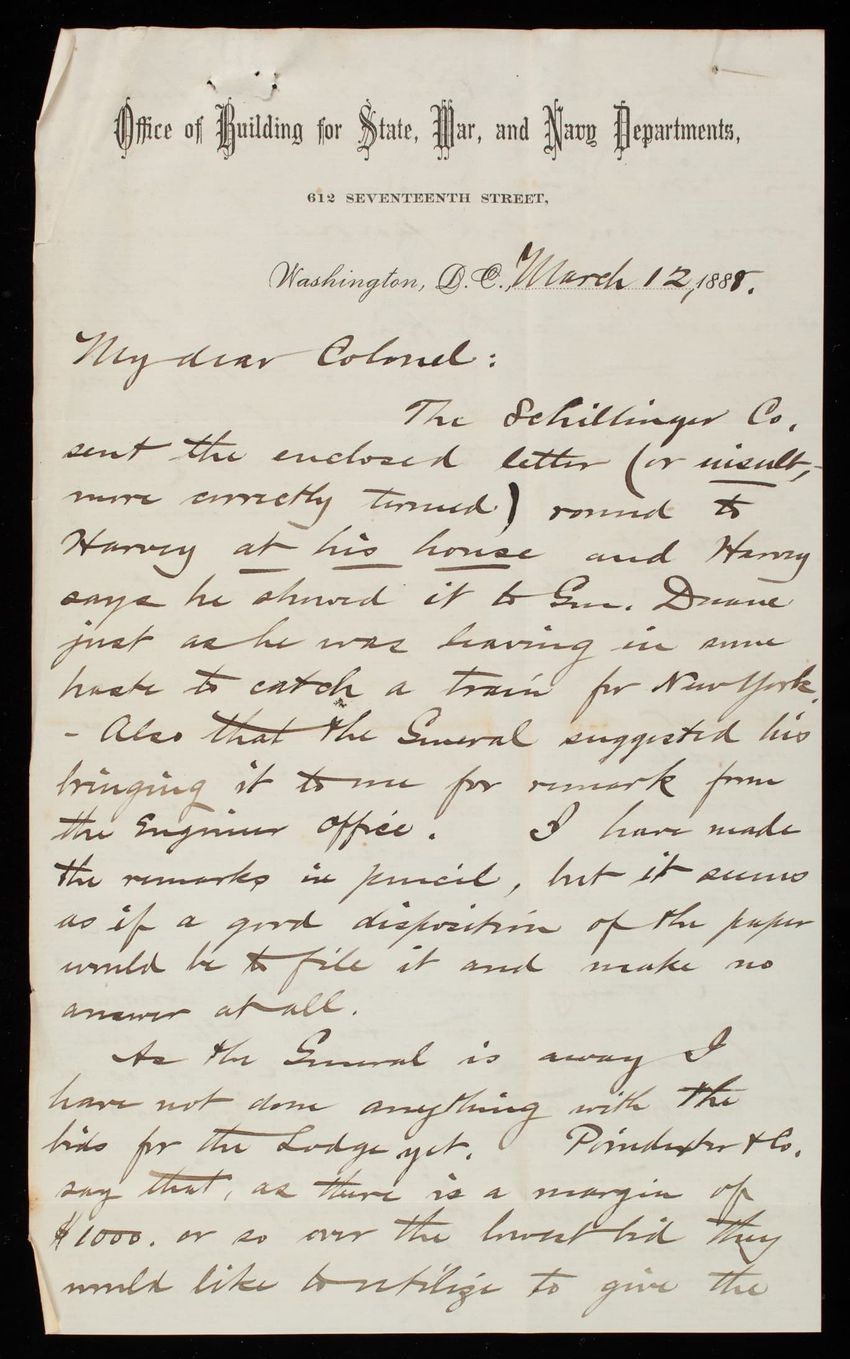 Office of Building for State, War, and Navy Departments,
612 SEVENTEENTH STREET,
Washington, D. C. March 12, 1888.
My dear Colonel:
The Schillinger Co.
sent the enclosed letter (or insult,
more correctly termed) round to
Harvey at his house and Harvey
says he showed it to Gen. Duane
just as he was leaving in some
haste to catch a train for New York.
- Also that the General suggested his
bringing it to me for remark from
the Engineer office. I have made
the remarks in pencil, but it seems
as if a good disposition of the paper
would be to file it and make no
answer at all.
As the General is away I
have not done anything with the
bids for the Lodge yet. Poindexter & Co.
say that, as there is a margin of
$1000. or so over the lowest bid they
would like to utilize to give the